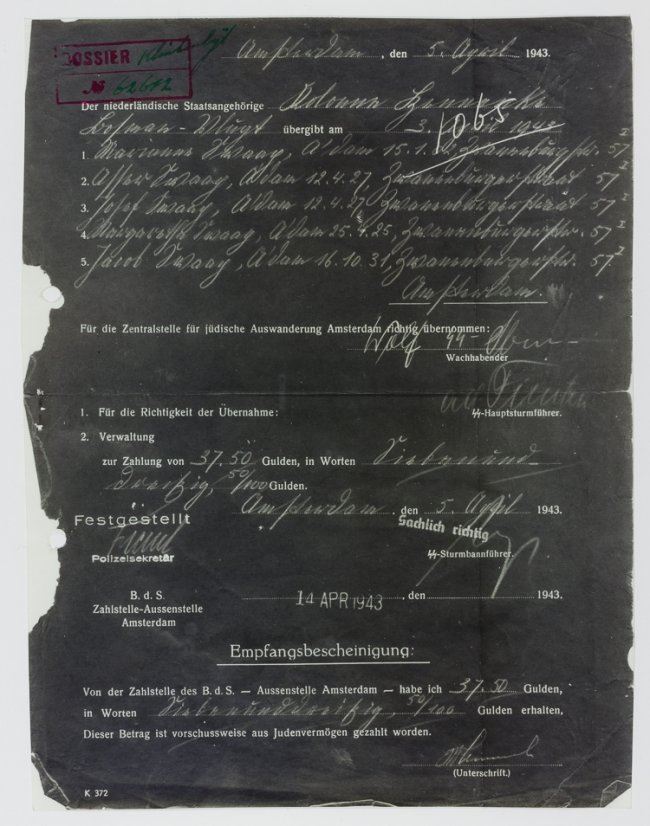 DOSSIER
№ 62602
Amsterdam, den 5. April 1943.
Der niederländische Staatsangehörige Kolonne Henneicke
übergibt am 3. 1943
1065
1. Marianne Swaag, A'dam 15.1. 57
2. Asser Swaag, A'dam 12.4.27, Zwanenburgerstraat 57
3. Josef Swaag, A'dam 12.4.27 Zwanenburgerstraat 57
4. Swaag, A'dam 25.4.25, Zwanenburgerstr. 57
5. Jacob Swaag, A'dam 16.10.31, Zwanenburgerstr. 57
Amsterdam.
Für die Zentralstelle für jüdische Auswanderung Amsterdam richtig übernommen:
Wolf
Wachhabender
1. Für die Richtigkeit der Übernahme:
SS-Hauptsturmführer.
2. Verwaltung
zur Zahlung von 37.50 Gulden, in Worten Siebenund-
dreißig, 50/100 Gulden.
Amsterdam, den 5. April 1943.
Festgestellt
Sachlich richtig
Polizeisekretär
SS-Sturmbannführer.
B. d. S.
Zahlstelle-Aussenstelle
Amsterdam
14 APR 1943, den 1943.
Empfangsbescheinigung:
Von der Zahlstelle des B. d. S. — Aussenstelle Amsterdam — habe ich 37.50 Gulden,
in Worten Siebenunddreißig, 50/100 Gulden erhalten.
Dieser Betrag ist vorschussweise aus Judenvermögen gezahlt worden.
(Unterschrift.)
K 372